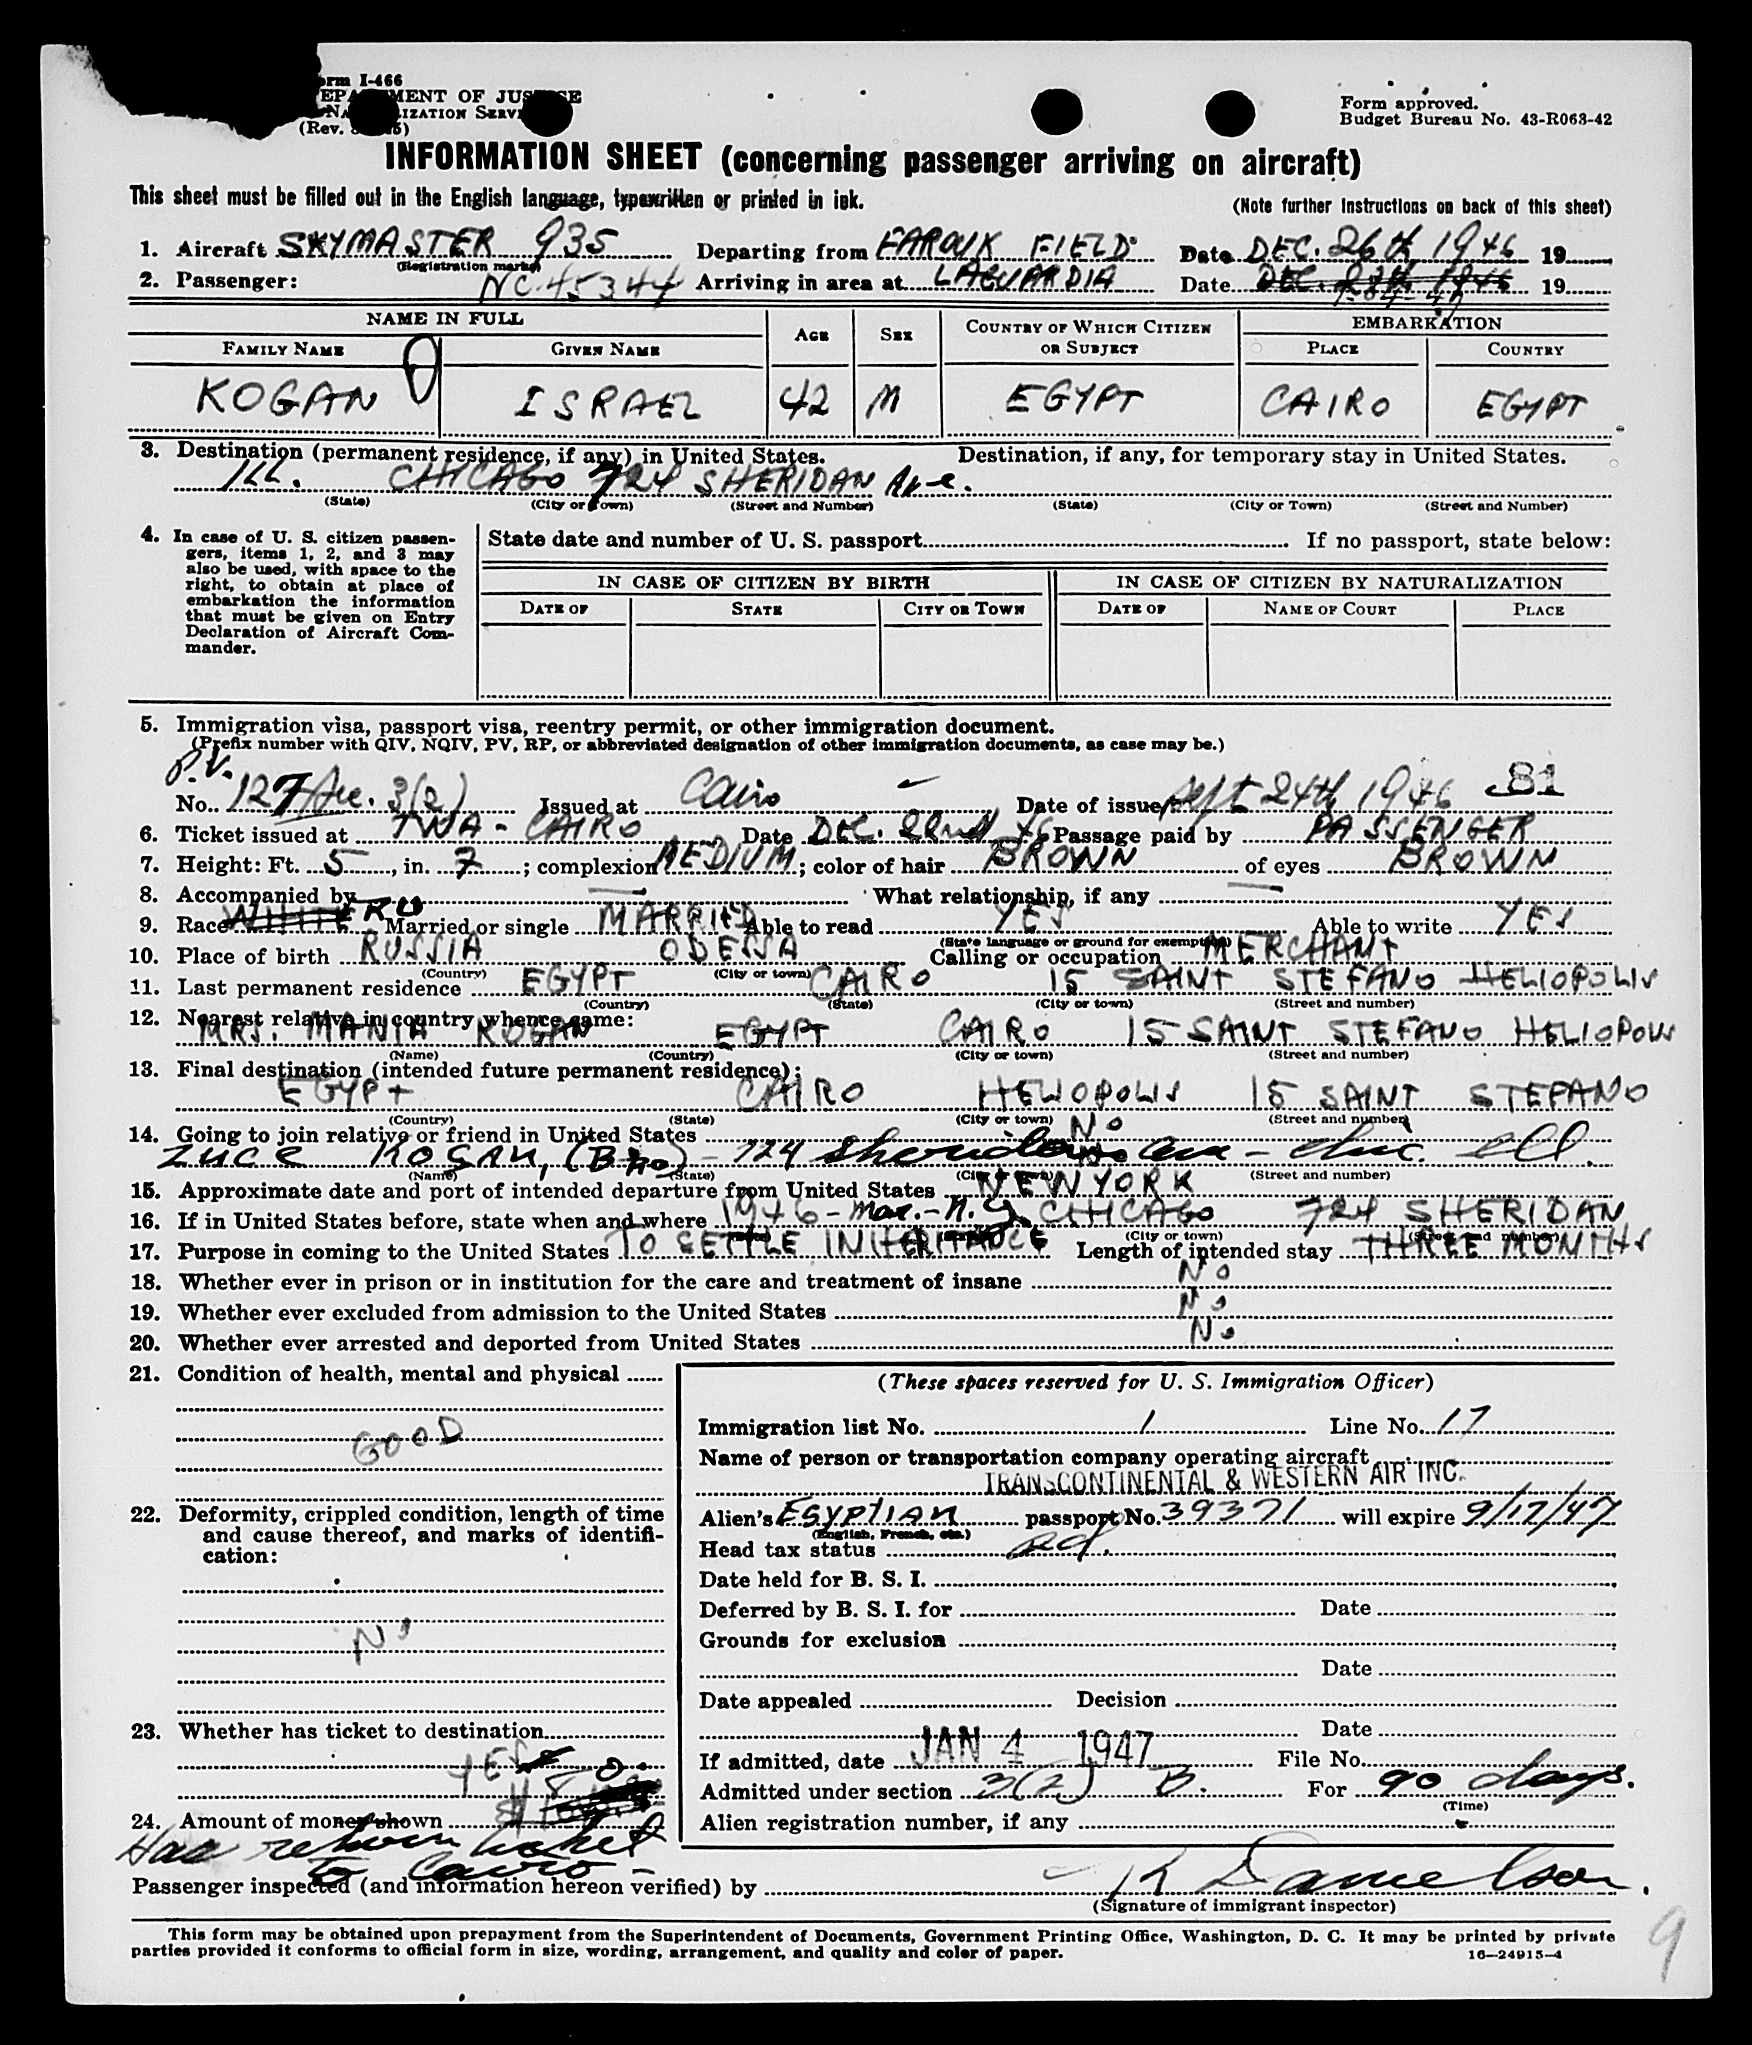 orm I-466
EPA MENT OF JUS E
NA IZATION SERVI
(Rev.
Form approved.
Budget Bureau No. 43-R063-42
INFORMATION SHEET (concerning passenger arriving on aircraft)
This sheet must be filled out in the English language, typewritten or printed in ink.
(Note further instructions on back of this sheet)
1. Aircraft SKYMASTER 935 Departing from FAROUK FIELD Date DEC. 26th 1946 19
(Registration marks)
2. Passenger: NC 45344 Arriving in area at LAGUARDIA Date DEC. 1946 19
NAME IN FULL AGE SEX COUNTRY OF WHICH CITIZEN OR SUBJECT EMBARKATION
FAMILY NAME GIVEN NAME PLACE COUNTRY
KOGAN ISRAEL 42 M EGYPT CAIRO EGYPT
3. Destination (permanent residence, if any) in United States. Destination, if any, for temporary stay in United States.
ILL. CHICAGO 724 SHERIDAN Ave.
(State) (City or Town) (Street and Number) (State) (City or Town) (Street and Number)
4. In case of U. S. citizen passen-
gers, items 1, 2, and 3 may
also be used, with space to the
right, to obtain at place of
embarkation the information
that must be given on Entry
Declaration of Aircraft Com-
mander.
State date and number of U. S. passport If no passport, state below:
IN CASE OF CITIZEN BY BIRTH IN CASE OF CITIZEN BY NATURALIZATION
DATE OF STATE CITY OR TOWN DATE OF NAME OF COURT PLACE
5. Immigration visa, passport visa, reentry permit, or other immigration document.
(Prefix number with QIV, NQIV, PV, RP, or abbreviated designation of other immigration documents, as case may be.)
P.V.
No. 127 3(2) Issued at Cairo Date of issue Sept 24th 1946 81
6. Ticket issued at TWA - CAIRO Date DEC. 22nd 46 Passage paid by PASSENGER
7. Height: Ft. 5, in. 7; complexion MEDIUM; color of hair BROWN of eyes BROWN
8. Accompanied by — What relationship, if any —
9. Race WHITE RU Married or single MARRIED Able to read YES Able to write YES
(State language or ground for exemption)
10. Place of birth RUSSIA ODESSA Calling or occupation MERCHANT
(Country) (City or town)
11. Last permanent residence EGYPT CAIRO 15 SAINT STEFANO HELIOPOLIS
(Country) (State) (City or town) (Street and number)
12. Nearest relative in country whence came:
MRS. MANIA KOGAN EGYPT CAIRO 15 SAINT STEFANO HELIOPOLIS
(Name) (Country) (City or town) (Street and number)
13. Final destination (intended future permanent residence):
EGYPT CAIRO HELIOPOLIS 15 SAINT STEFANO
(Country) (State) (City or town) (Street and number)
14. Going to join relative or friend in United States No
KOGAN, (Bro) - 724 Sheridan Ave - Chic. Ill.
(Name) (State) (City or town) (Street and number)
15. Approximate date and port of intended departure from United States NEW YORK
16. If in United States before, state when and where 1946 - Mar. - N.Y. CHICAGO 724 SHERIDAN
(City or town) (Street and number)
17. Purpose in coming to the United States TO SETTLE INHERITANCE Length of intended stay THREE MONTHS
18. Whether ever in prison or in institution for the care and treatment of insane No
19. Whether ever excluded from admission to the United States No
20. Whether ever arrested and deported from United States No
21. Condition of health, mental and physical
GOOD
22. Deformity, crippled condition, length of time
and cause thereof, and marks of identifi-
cation:
No
23. Whether has ticket to destination
YES
24. Amount of money shown
Has return ticket
to Cairo -
(These spaces reserved for U. S. Immigration Officer)
Immigration list No. 1 Line No. 17
Name of person or transportation company operating aircraft
TRANSCONTINENTAL & WESTERN AIR INC.
Alien's Egyptian passport No. 39371 will expire 9/17/47
(English, French, etc.)
Head tax status
Date held for B. S. I.
Deferred by B. S. I. for Date
Grounds for exclusion
Date
Date appealed Decision
Date
If admitted, date JAN 4 1947 File No.
Admitted under section 3(2) B. For 90 days.
(Time)
Alien registration number, if any
Passenger inspected (and information hereon verified) by R Danielson.
(Signature of immigrant inspector)
This form may be obtained upon prepayment from the Superintendent of Documents, Government Printing Office, Washington, D. C. It may be printed by private
parties provided it conforms to official form in size, wording, arrangement, and quality and color of paper. 16—24915-4
9